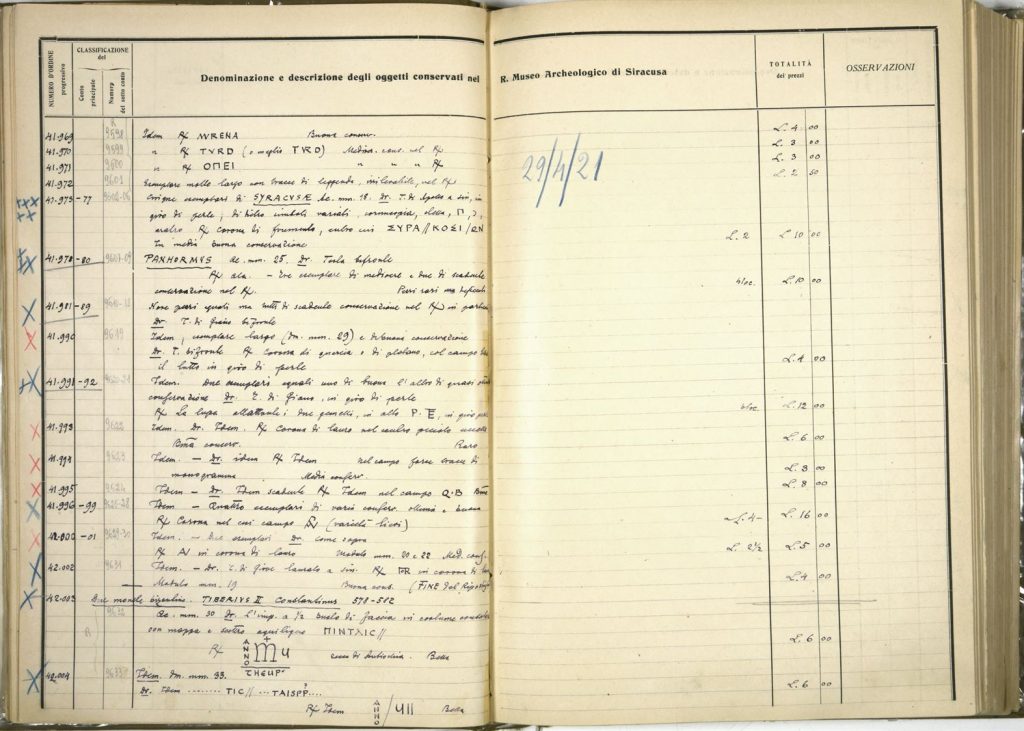 NUMERO D'ORDINE progressivo
CLASSIFICAZIONE del
Conto principale
Numero del sotto conto
Denominazione e descrizione degli oggetti conservati nel R. Museo Archeologico di Siracusa
TOTALITÀ dei prezzi
OSSERVAZIONI
29/4/21
41.969 9598 Idem R/ MVRENA Buona conserv. L. 4 00
41.970 9599 " R/ TVRD (o meglio TVRD) Mediocr. cons. nel R/ L. 3 00
41.971 9600 " R/ OΠEI " " " R/ L. 3 00
41.972 9601 Esemplare molto largo con tracce di leggenda, nel R/ L. 2 50
41.973-77 Cinque esemplari di SYRACVSAE ae. mm. 18. Dr. T. di Apollo a sin, in
giro di perle; di dietro simboli variati, cornucopia, Π,
aratro R/ corona di frumento, entro cui ΣΥΡΑ//ΚΟΣΙ/ΩΝ
In media buona conservazione L. 2 L. 10 00
41.978-80 PANHORMVS ae. mm. 25. Dr. Testa bifronte
R/ ara. - Tre esemplare di mediocre e due di scadente
conservazione nel R/. Pezzi rari ma L. 10 00
41.981-89 Nove pezzi eguali ma tutti di scadente conservazione nel R/ in
Dr. T. di Giano bifronte
41.990 9619 Idem, esemplare largo (dm. mm. 29) e di buona conservazione
Dr. T. bifronte R/ Corona di quercia o di platano, col campo
il tutto in giro di perle L. 4 00
41.991-92 Idem. Due esemplari eguali uno di buona l'altro di quasi
conservazione Dr. T. di Giano, in giro di perle
R/ La lupa allattante i due gemelli, in alto P·E, in giro L. 12 00
41.993 9622 Idem. Dr. Idem. R/ Corona di lauro nel centro piccolo
Bma conserv. Raro L. 6 00
41.994 9623 Idem. - Dr. idem R/ Idem nel campo forse tracce di
monogramma Media conserv. L. 3 00
41.995 9624 Idem - Dr. Idem scadente R/ Idem nel campo Q·B L. 8 00
41.996-99 Idem - Quattro esemplari di varia conserv. ottima e buona
R/ Corona nel cui campo (varietà lievi) L. 4 - L. 16 00
42.000-01 9629-30 Idem. - Due esemplari Dr. come sopra
R/ in corona di lauro Modulo mm. 20 e 22 Med. cons. L. 2½ L. 5 00
42.002 9631 Idem. - Dr. T. di Giove laureato a sin. R/ in corona di
Modulo mm. 19 Buona cons. (FINE del L. 4 00
42.003 Due monete bizantine. TIBERIUS II Constantinus 578-582
9632 Ae. mm. 30 Dr. L'imp. a ½ busto di faccia in costume
con mappa e scettro ΠINTΛIC//
R/ ANNO m Ч THEUP' zecca di Antiochia. Bella L. 6 00
42.004 9633 Idem. dm. mm. 33.
Dr. Idem ........ TIC//....TAISPP....
R/ Idem ANNO / ЧII Bella L. 6 00